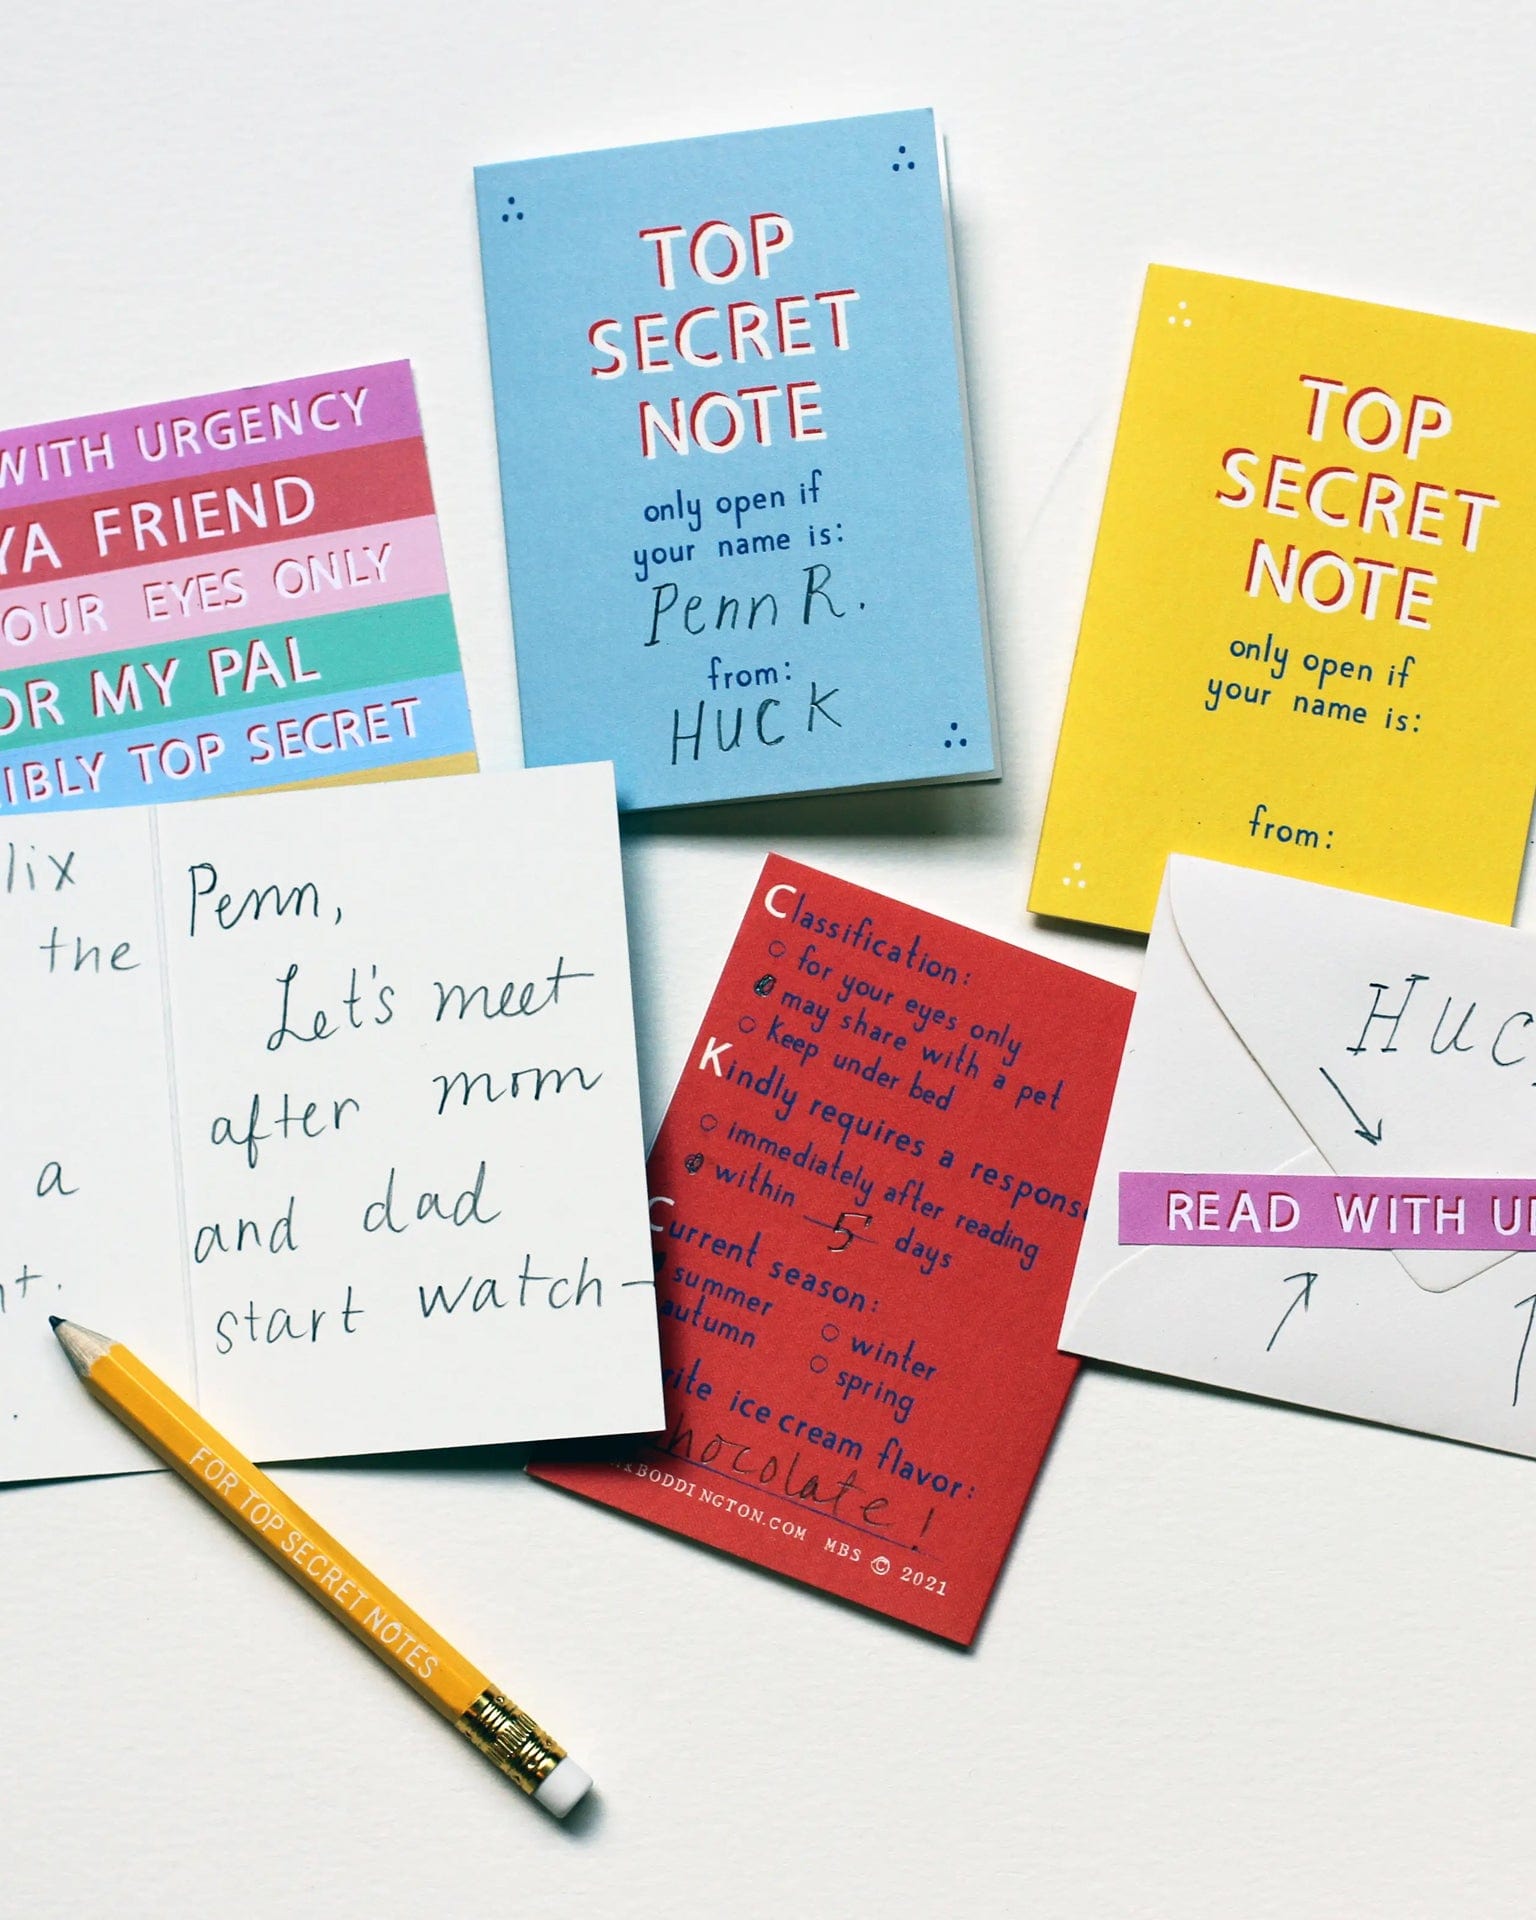 TOP
SECRET
NOTE
only open if
your name is:
Penn R.
from:
HUCK
TOP
SECRET
NOTE
only open if
your name is:
from:
WITH URGENCY
YA FRIEND
OUR EYES ONLY
OR MY PAL
IBLY TOP SECRET
lix
the
a
Penn,
Let's meet
after mom
and dad
start watch-
Classification:
for your eyes only
may share with a pet
keep under bed
Kindly requires a respons
immediately after reading
within 5 days
Current season:
summer
autumn
winter
spring
rite ice cream flavor:
hocolate!
BODDINGTON.COM MBS © 2021
Huc
READ WITH U
FOR TOP SECRET NOTES